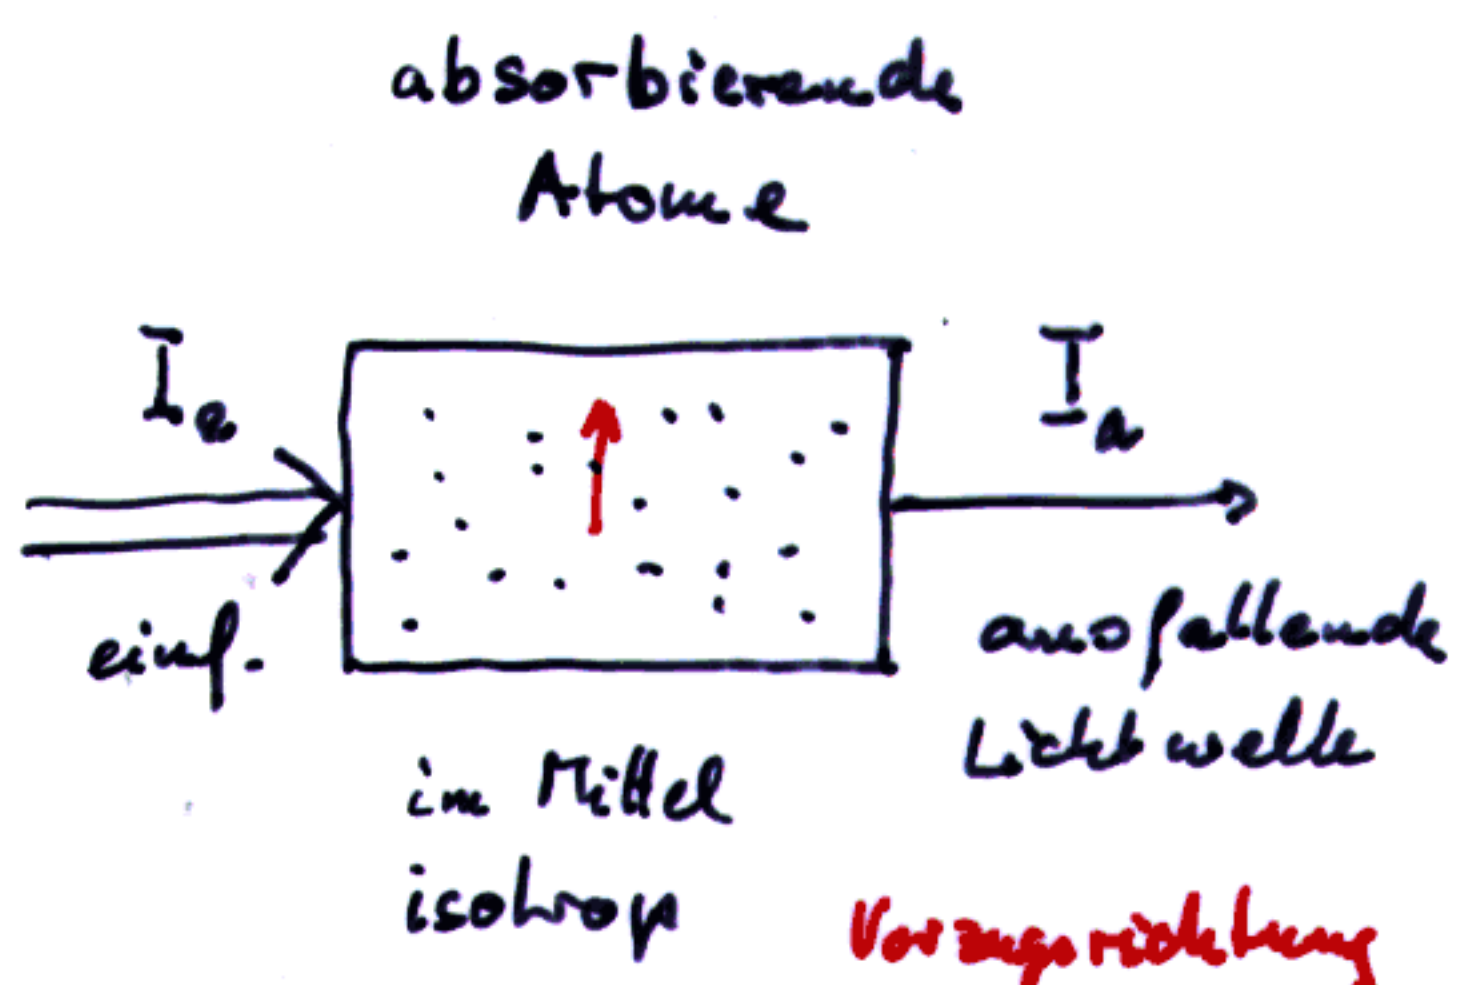 absorbierende
Atome
I_e
I_a
einf.
ausfallende
Lichtwelle
im Mittel
isotrop
Vorzugsrichtung